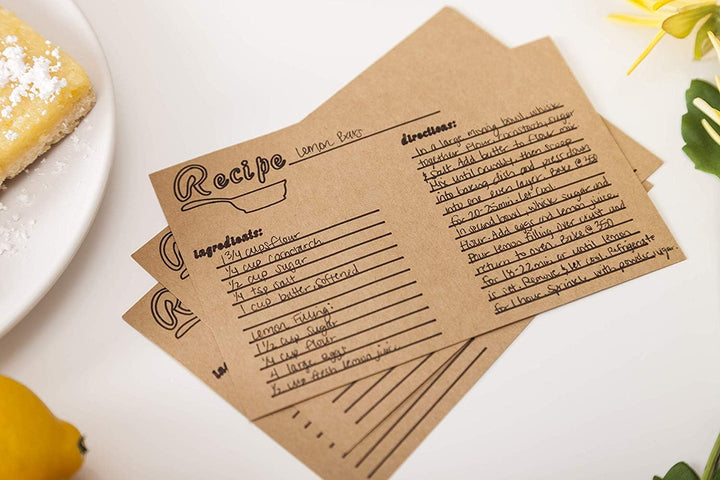 Recipe Lemon Bars
ingredients:
1 3/4 cups flour
1/4 cup cornstarch
1/2 cup sugar
1/4 tsp salt
1 cup butter softened
Lemon Filling:
1 1/2 cup sugar
1/4 cup flour
4 large eggs
1/2 cup fresh lemon juice
directions:
In a large mixing bowl, whisk
together flour, cornstarch, sugar
& salt. Add butter to flour mix
Mix until crumbly then scoop
into baking dish and press down
into one even layer. Bake @ 350
for 20-25 min. Let Cool.
In second bowl whisk sugar and
flour. Add eggs and lemon juice.
Pour lemon filling over crust and
return to oven. Bake @ 350
for 18-22 min or until lemon
is set. Remove & let cool. Refrigerate
for 1 hour. Sprinkle with powder sugar.
R
R